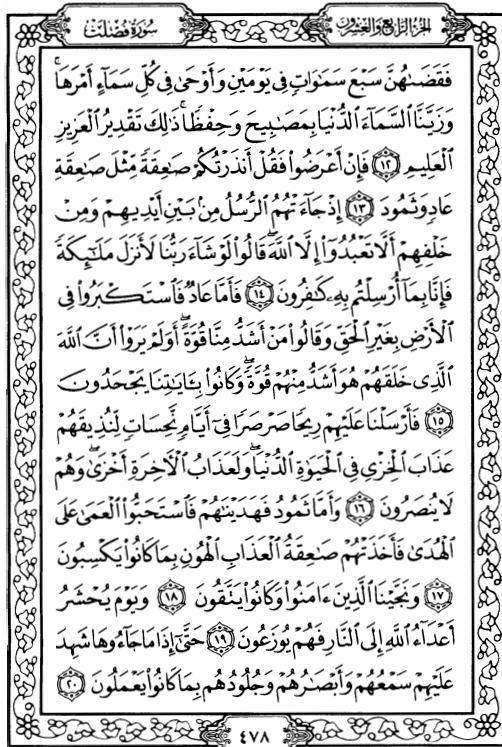 الجزء الرابع والعشرون
سورة فصلت
فَقَضَىٰهُنَّ سَبْعَ سَمَٰوَاتٍ فِى يَوْمَيْنِ وَأَوْحَىٰ فِى كُلِّ سَمَآءٍ أَمْرَهَا ۚ
وَزَيَّنَّا ٱلسَّمَآءَ ٱلدُّنْيَا بِمَصَٰبِيحَ وَحِفْظًا ۚ ذَٰلِكَ تَقْدِيرُ ٱلْعَزِيزِ
ٱلْعَلِيمِ ١٢ فَإِنْ أَعْرَضُوا۟ فَقُلْ أَنذَرْتُكُمْ صَٰعِقَةً مِّثْلَ صَٰعِقَةِ
عَادٍ وَثَمُودَ ١٣ إِذْ جَآءَتْهُمُ ٱلرُّسُلُ مِنۢ بَيْنِ أَيْدِيهِمْ وَمِنْ
خَلْفِهِمْ أَلَّا تَعْبُدُوٓا۟ إِلَّا ٱللَّهَ ۖ قَالُوا۟ لَوْ شَآءَ رَبُّنَا لَأَنزَلَ مَلَٰٓئِكَةً
فَإِنَّا بِمَآ أُرْسِلْتُم بِهِۦ كَٰفِرُونَ ١٤ فَأَمَّا عَادٌ فَٱسْتَكْبَرُوا۟ فِى
ٱلْأَرْضِ بِغَيْرِ ٱلْحَقِّ وَقَالُوا۟ مَنْ أَشَدُّ مِنَّا قُوَّةً ۖ أَوَلَمْ يَرَوْا۟ أَنَّ ٱللَّهَ
ٱلَّذِى خَلَقَهُمْ هُوَ أَشَدُّ مِنْهُمْ قُوَّةً ۖ وَكَانُوا۟ بِـَٔايَٰتِنَا يَجْحَدُونَ
١٥ فَأَرْسَلْنَا عَلَيْهِمْ رِيحًا صَرْصَرًا فِىٓ أَيَّامٍ نَّحِسَاتٍ لِّنُذِيقَهُمْ
عَذَابَ ٱلْخِزْىِ فِى ٱلْحَيَوٰةِ ٱلدُّنْيَا ۖ وَلَعَذَابُ ٱلْـَٔاخِرَةِ أَخْزَىٰ ۖ وَهُمْ
لَا يُنصَرُونَ ١٦ وَأَمَّا ثَمُودُ فَهَدَيْنَٰهُمْ فَٱسْتَحَبُّوا۟ ٱلْعَمَىٰ عَلَى
ٱلْهُدَىٰ فَأَخَذَتْهُمْ صَٰعِقَةُ ٱلْعَذَابِ ٱلْهُونِ بِمَا كَانُوا۟ يَكْسِبُونَ
١٧ وَنَجَّيْنَا ٱلَّذِينَ ءَامَنُوا۟ وَكَانُوا۟ يَتَّقُونَ ١٨ وَيَوْمَ يُحْشَرُ
أَعْدَآءُ ٱللَّهِ إِلَى ٱلنَّارِ فَهُمْ يُوزَعُونَ ١٩ حَتَّىٰٓ إِذَا مَا جَآءُوهَا شَهِدَ
عَلَيْهِمْ سَمْعُهُمْ وَأَبْصَٰرُهُمْ وَجُلُودُهُم بِمَا كَانُوا۟ يَعْمَلُونَ ٢٠
٤٧٨